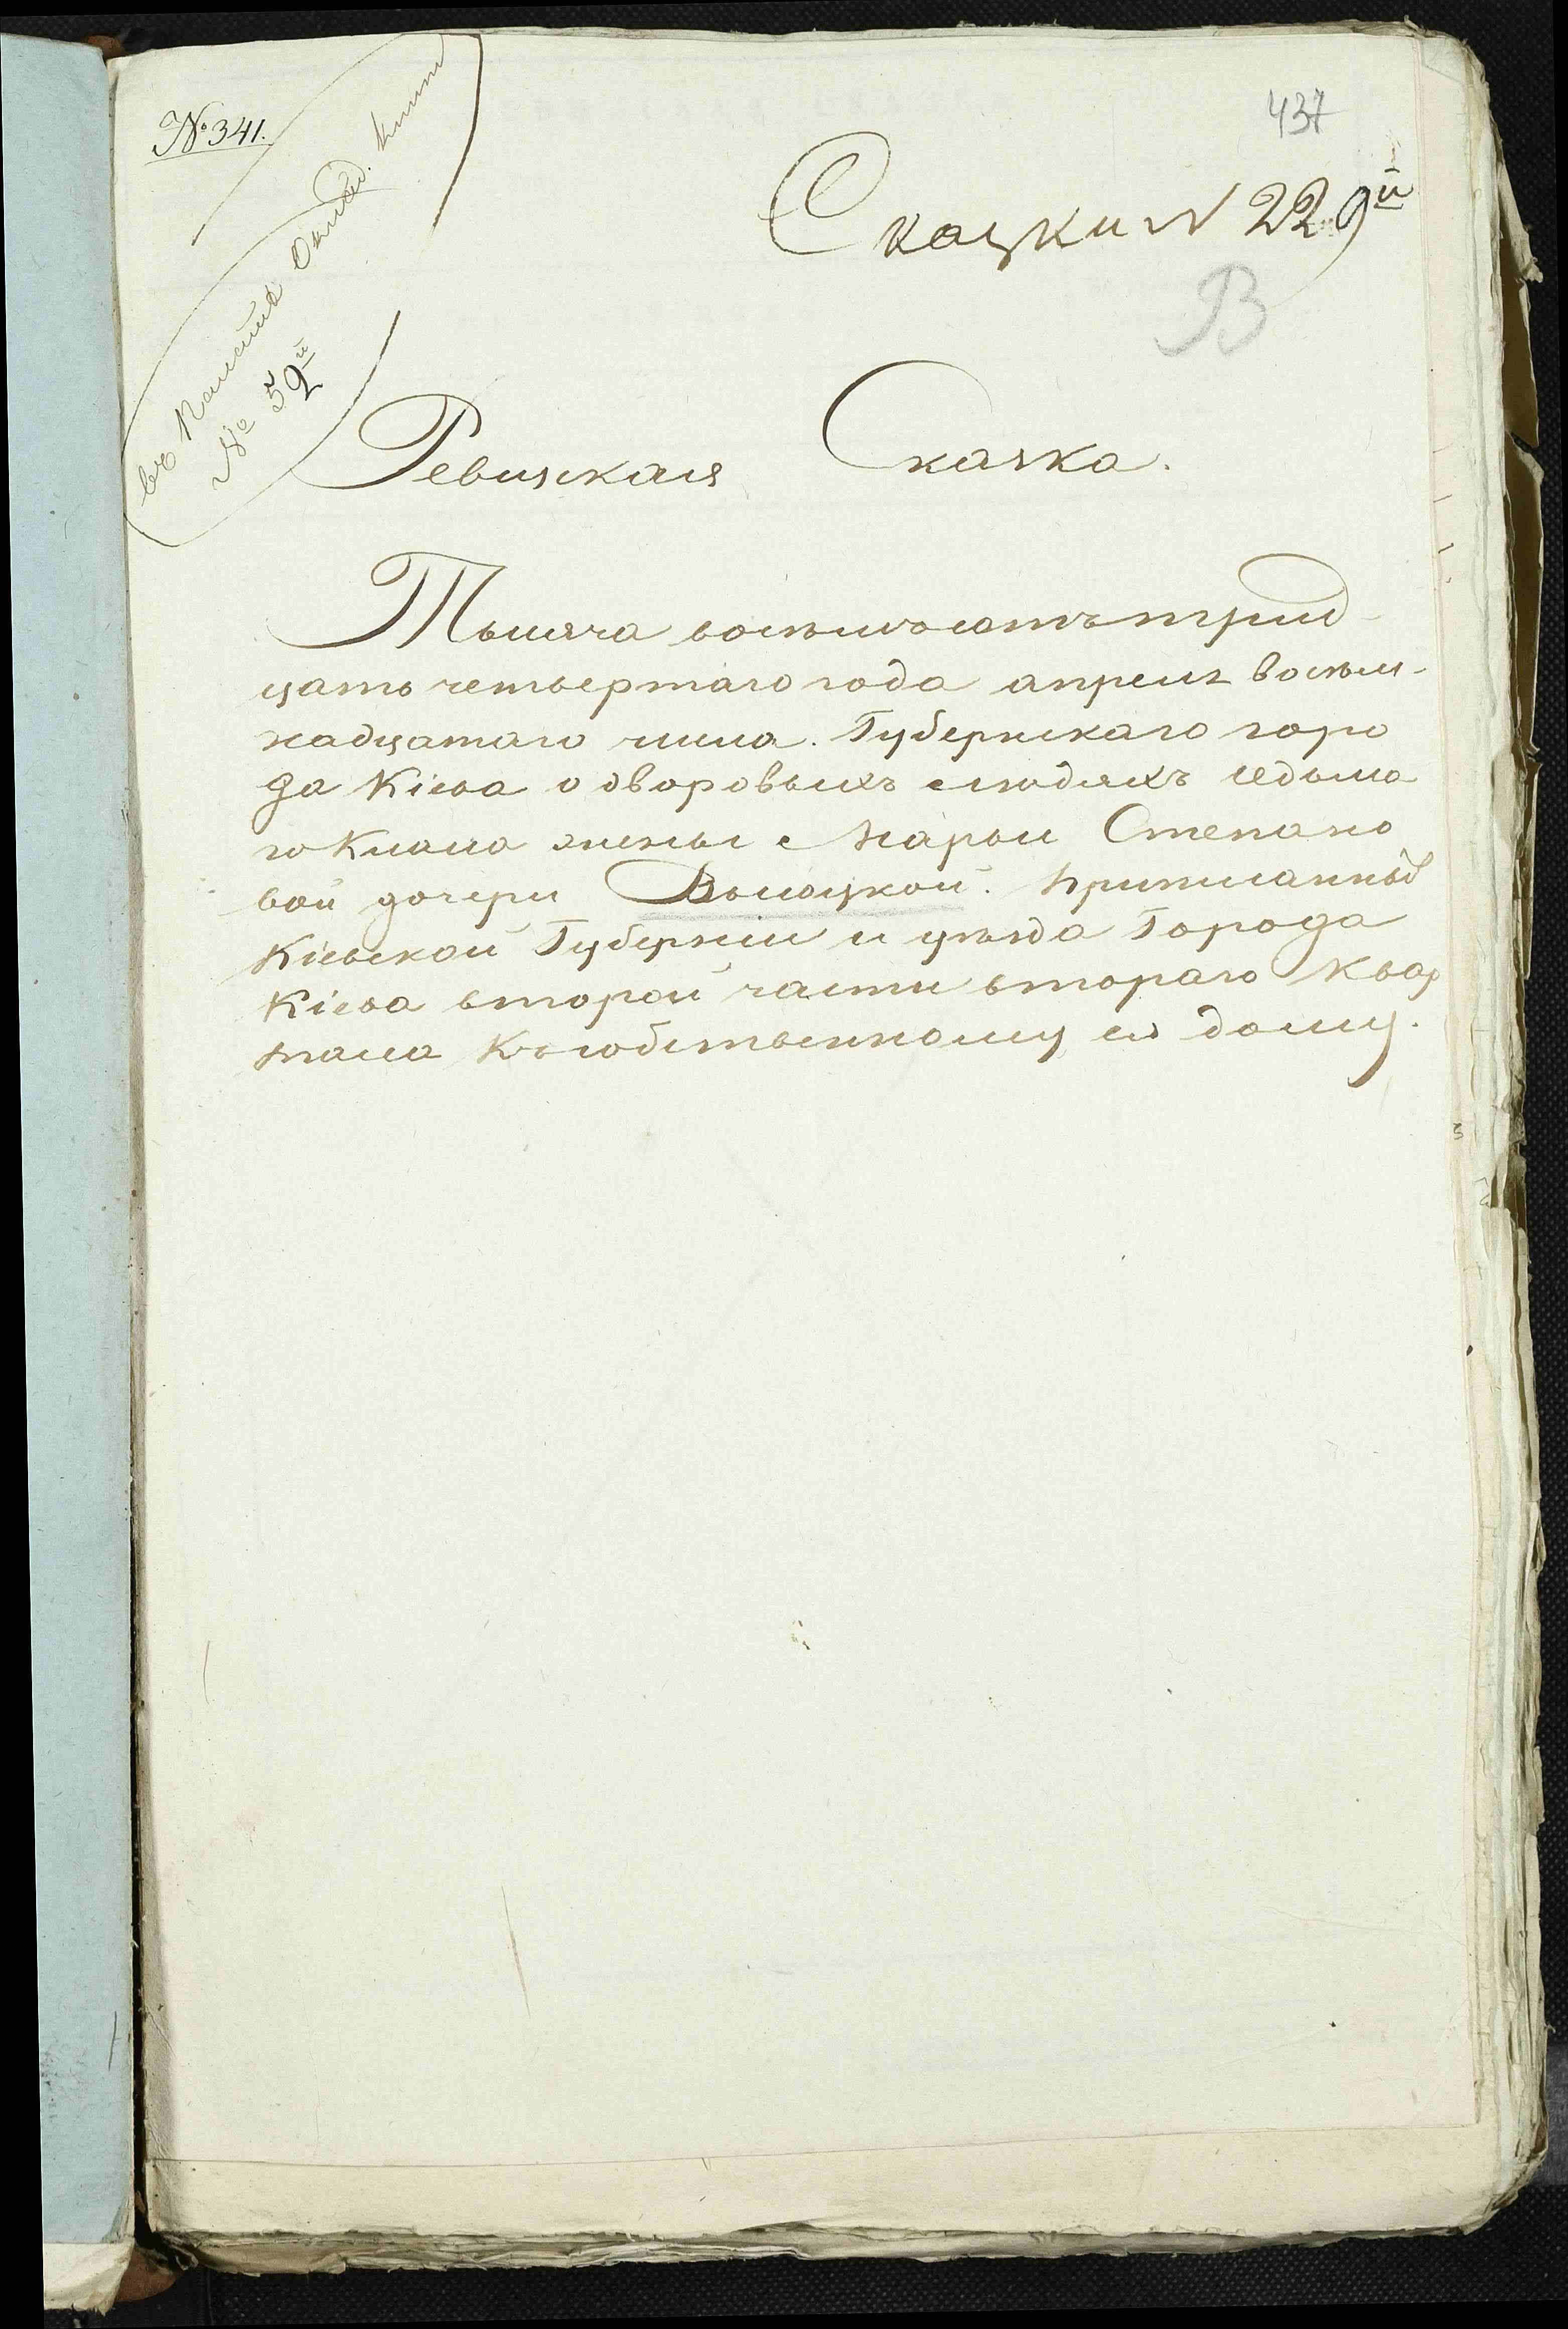 № 341.
437
Сказки N 229й
В
въ
№ 592й
Ревизская Сказка.
Тысяча восемьсотъ трид-
цать четвертаго года апреля восем-
надцатаго числа. Губернскаго горо
да Кіева о дворовыхъ людяхъ седьма
го Класа жены Марьи Степано
вой дочери Высоцкой. Приписанныхъ
Кіевской Губерніи и уѣзда Города
Кіева второй части втораго Квар
тала Къ собственному ея дому.